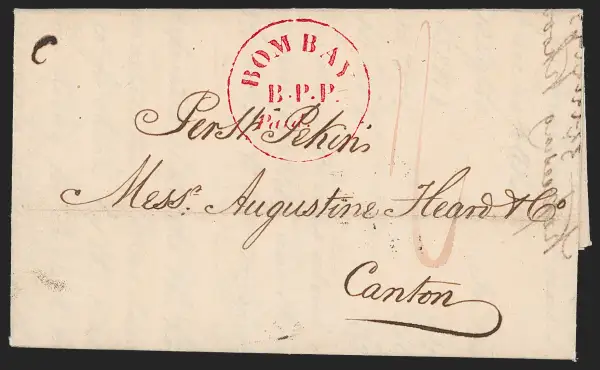 BOMBAY
B.P.P.
Paid
Per St^r Pekin
Mess^rs Augustine Heard & Co
Canton